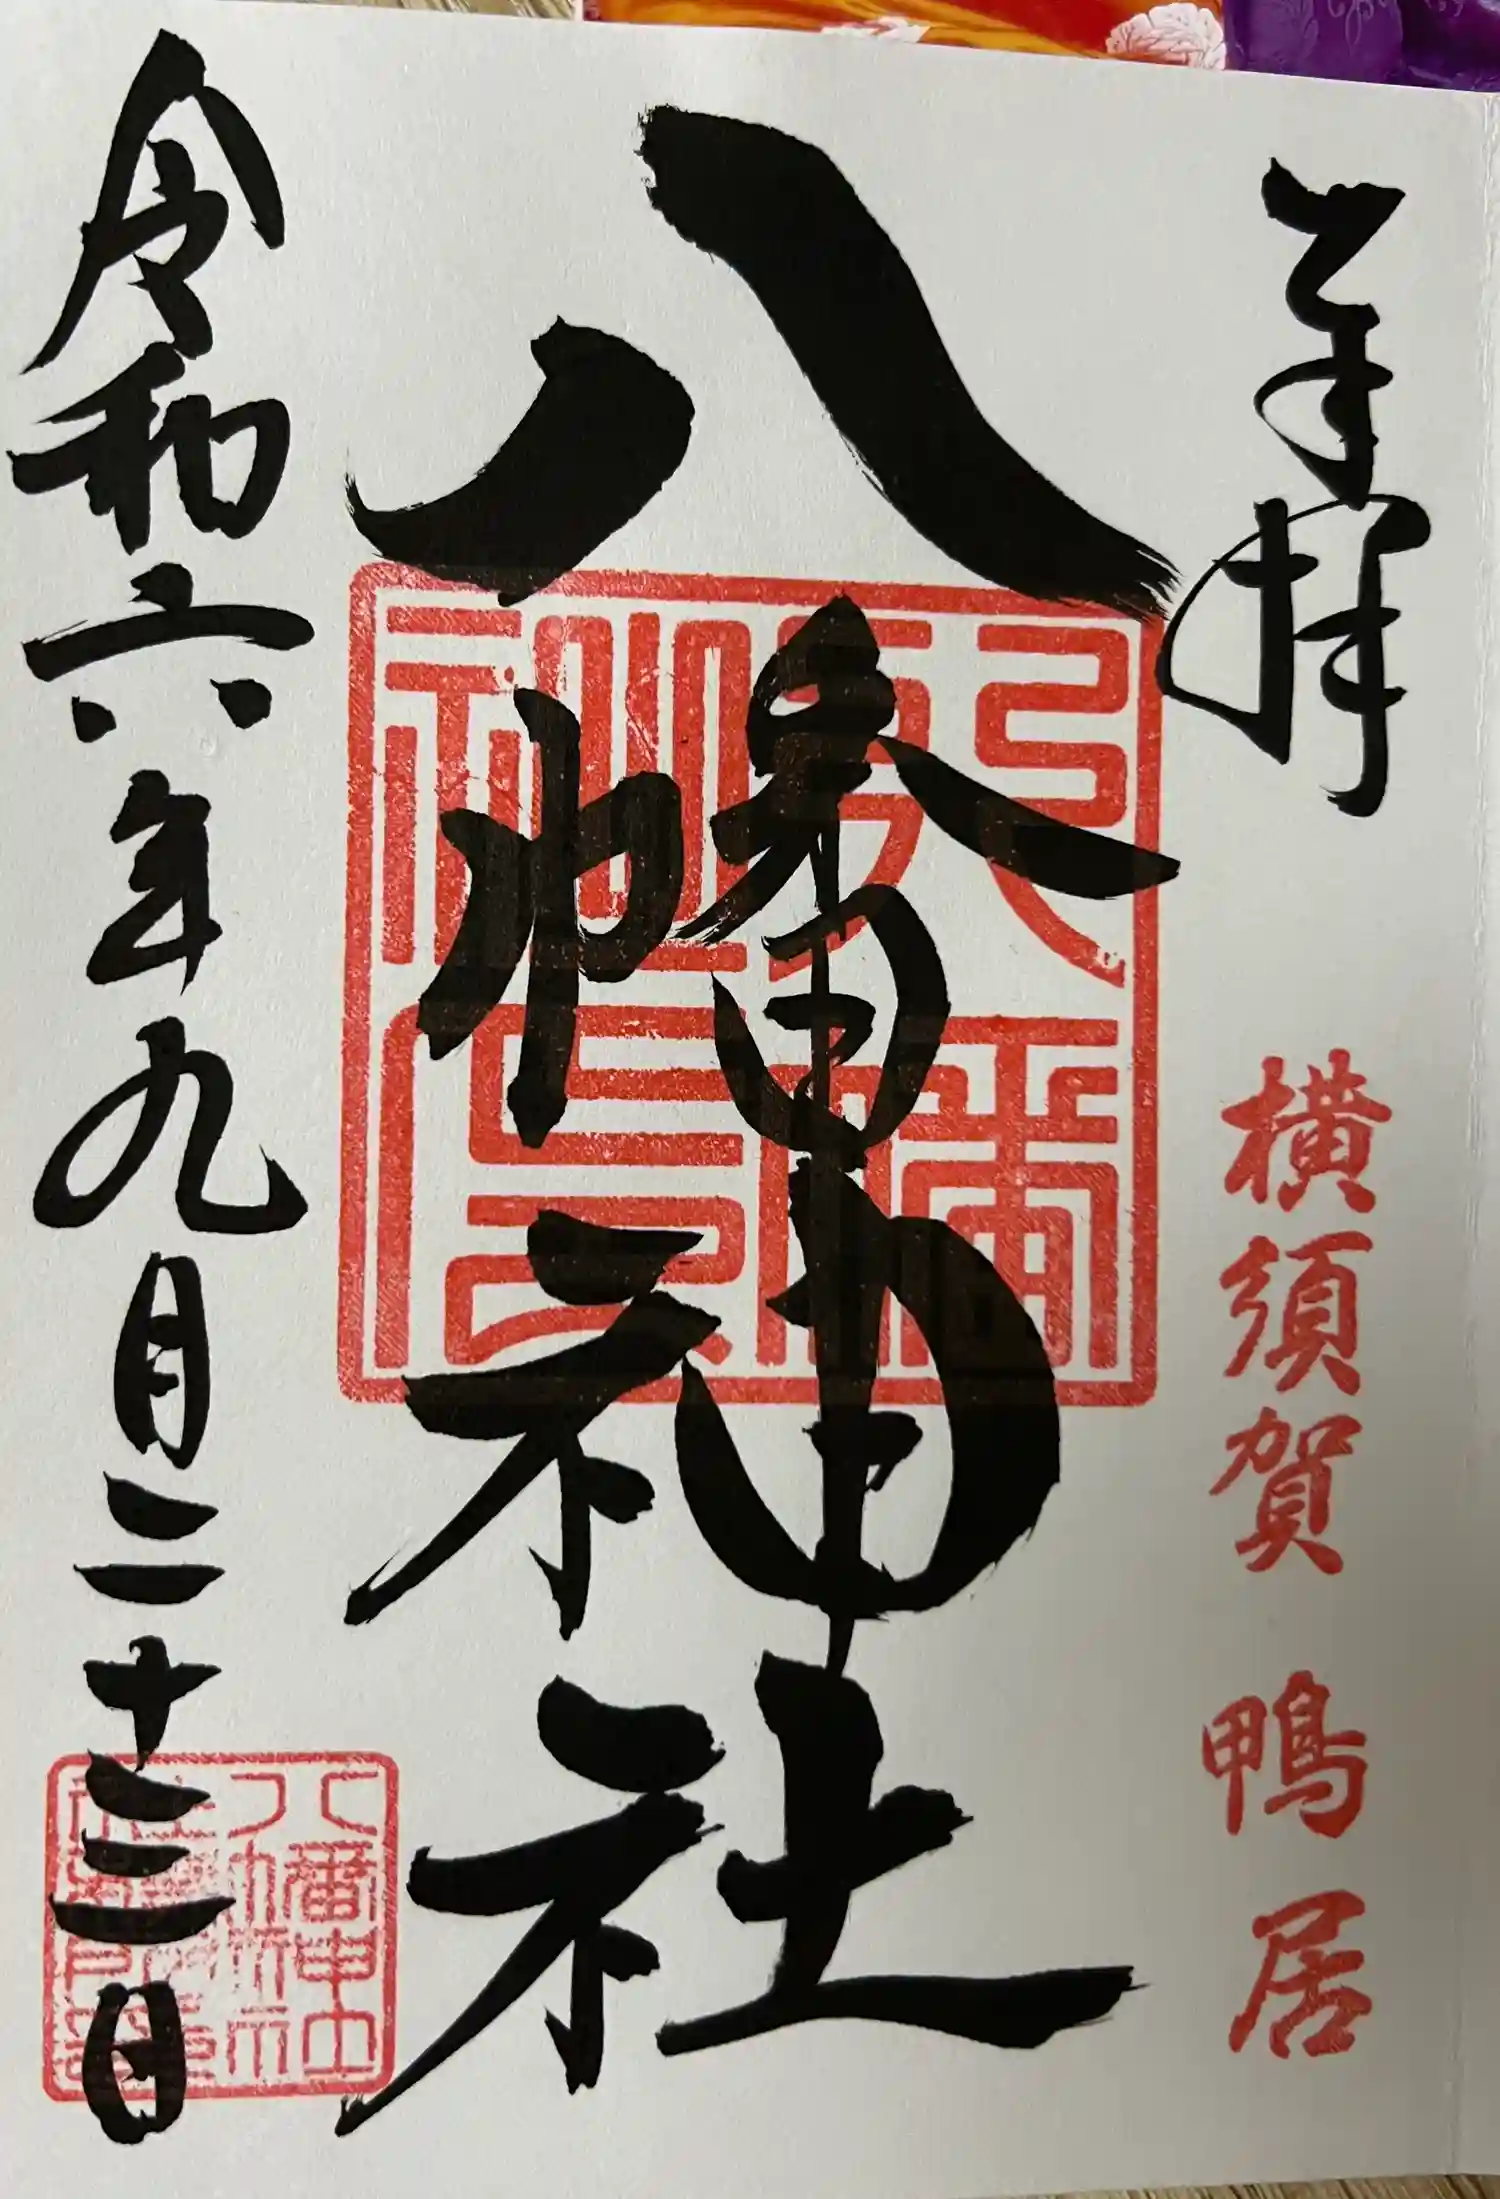 奉拝
横須賀 鴨居
八幡神社
令和六年九月二十三日